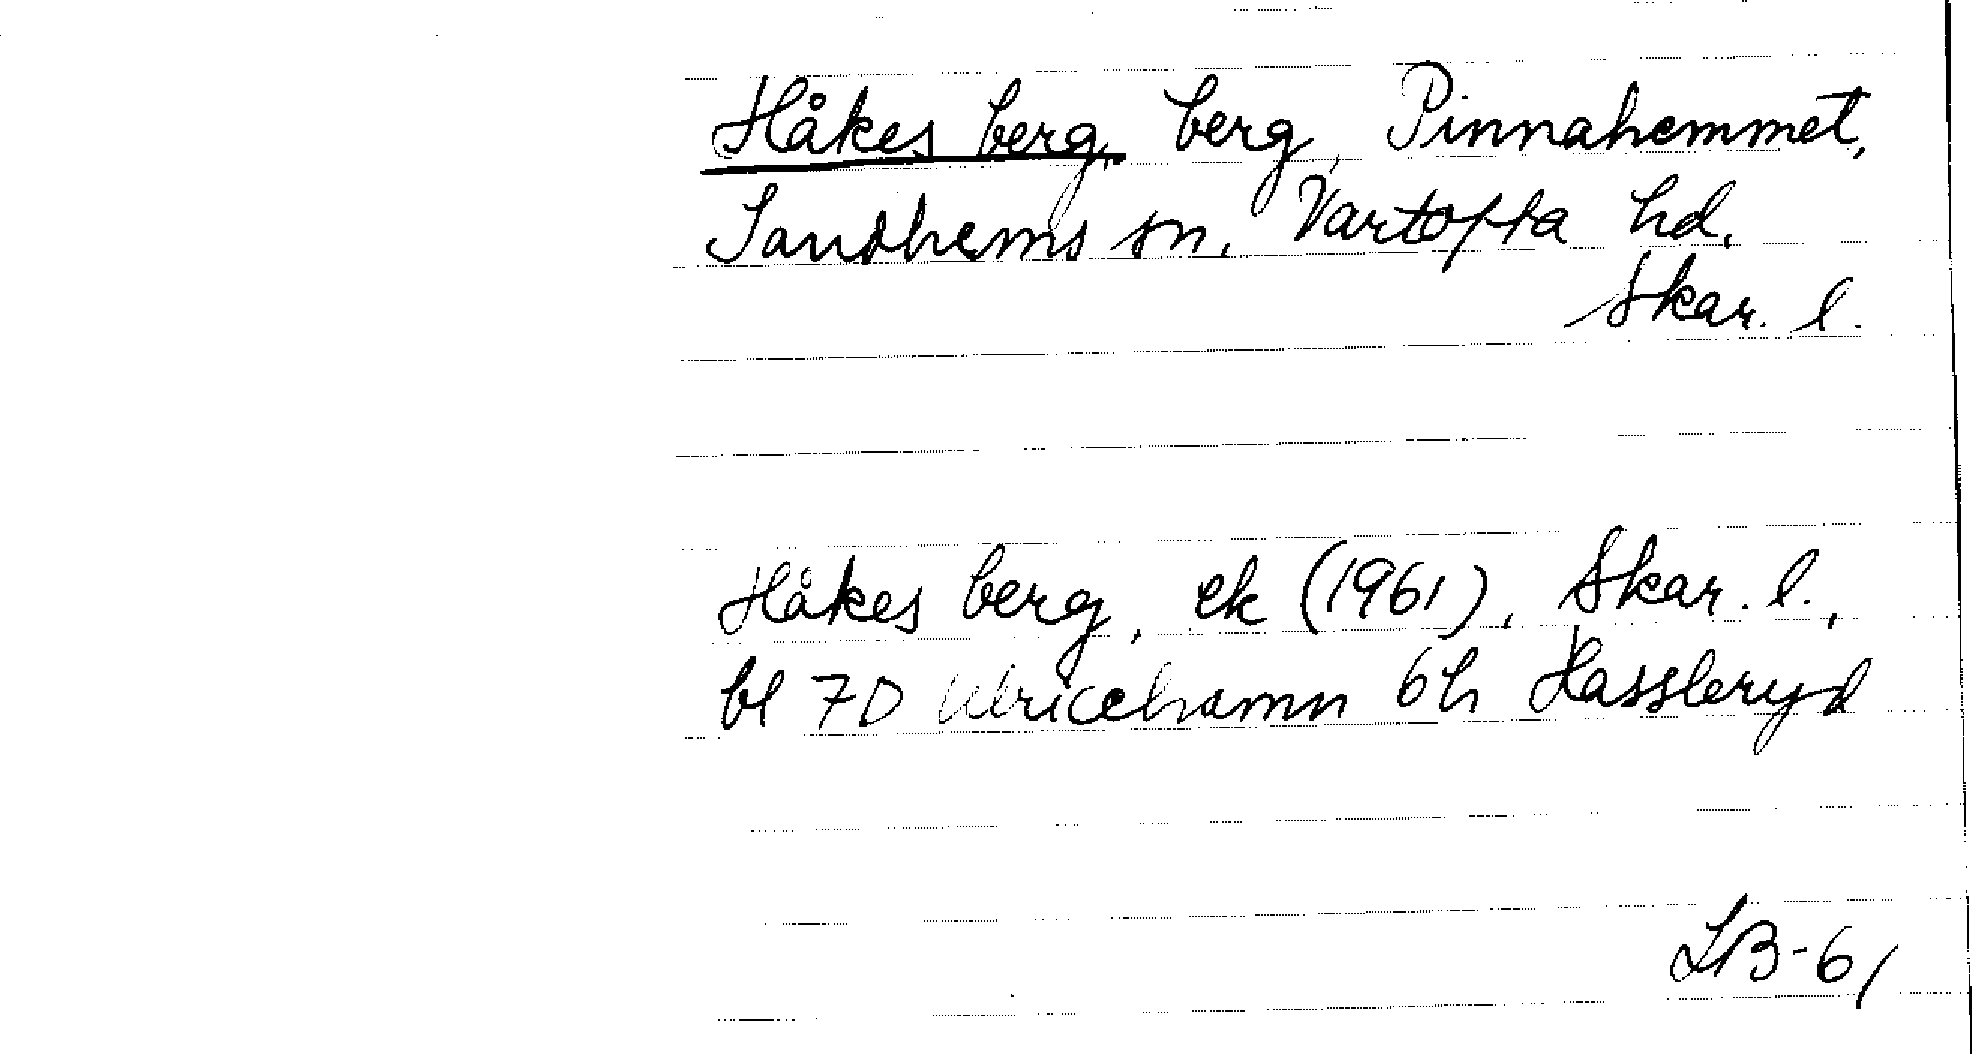 Håkes berg, berg, Pinnahemmet,
Sandhems sn, Vartofta hd,
Skar. l.
Håkes berg, ek (1961), Skar. l.,
bl 7D Ulricehamn 6h Hassleryd
LB-61